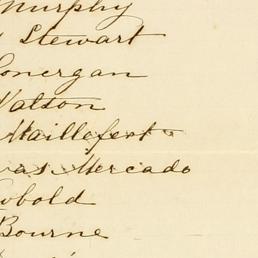 Murphy
Stewart
Lonergan
Watson
Maillefert
Mercado
Bourne